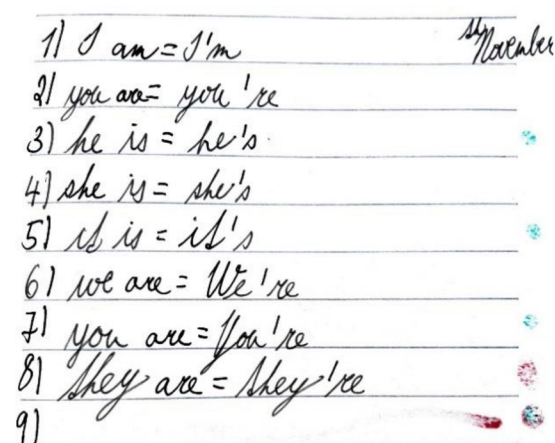 1) I am = I'm
November
2) you are = you're
3) he is = he's.
4) she is = she's
5) it is = it's
6) we are = We're
7) you are = You're
8) they are = they're
9)